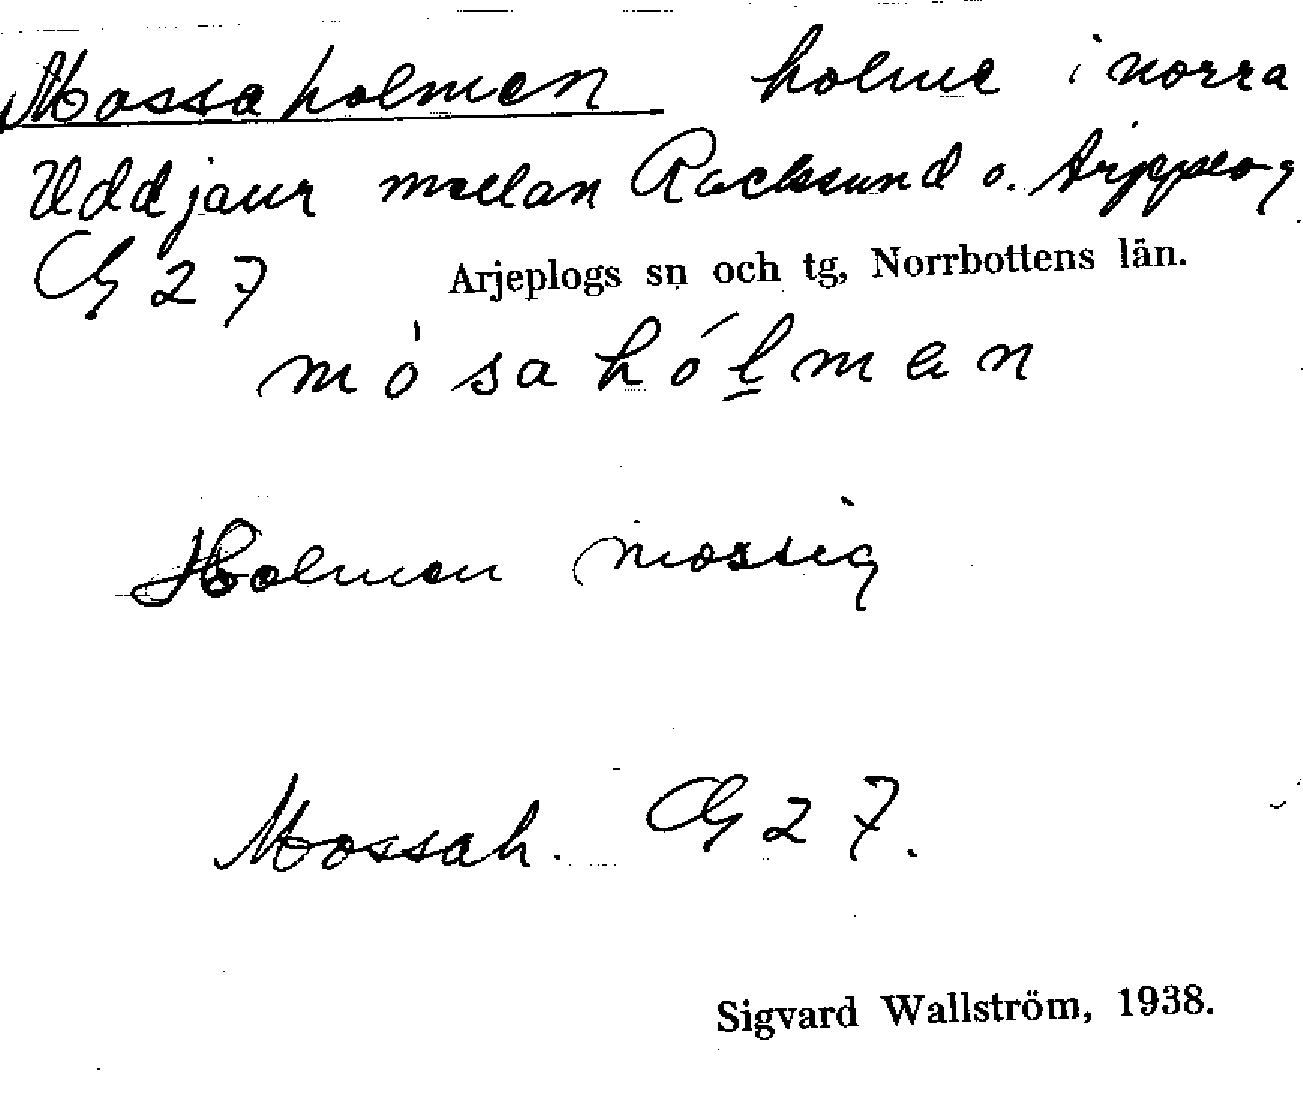 Mossaholmen holme i norra
Uddjaur mellan Racksund o. Arjeplog
G 27
Arjeplogs sn och tg, Norrbottens län.
mòsahóḷman
Holmen mossig
Mossah. G 27.
Sigvard Wallström, 1938.